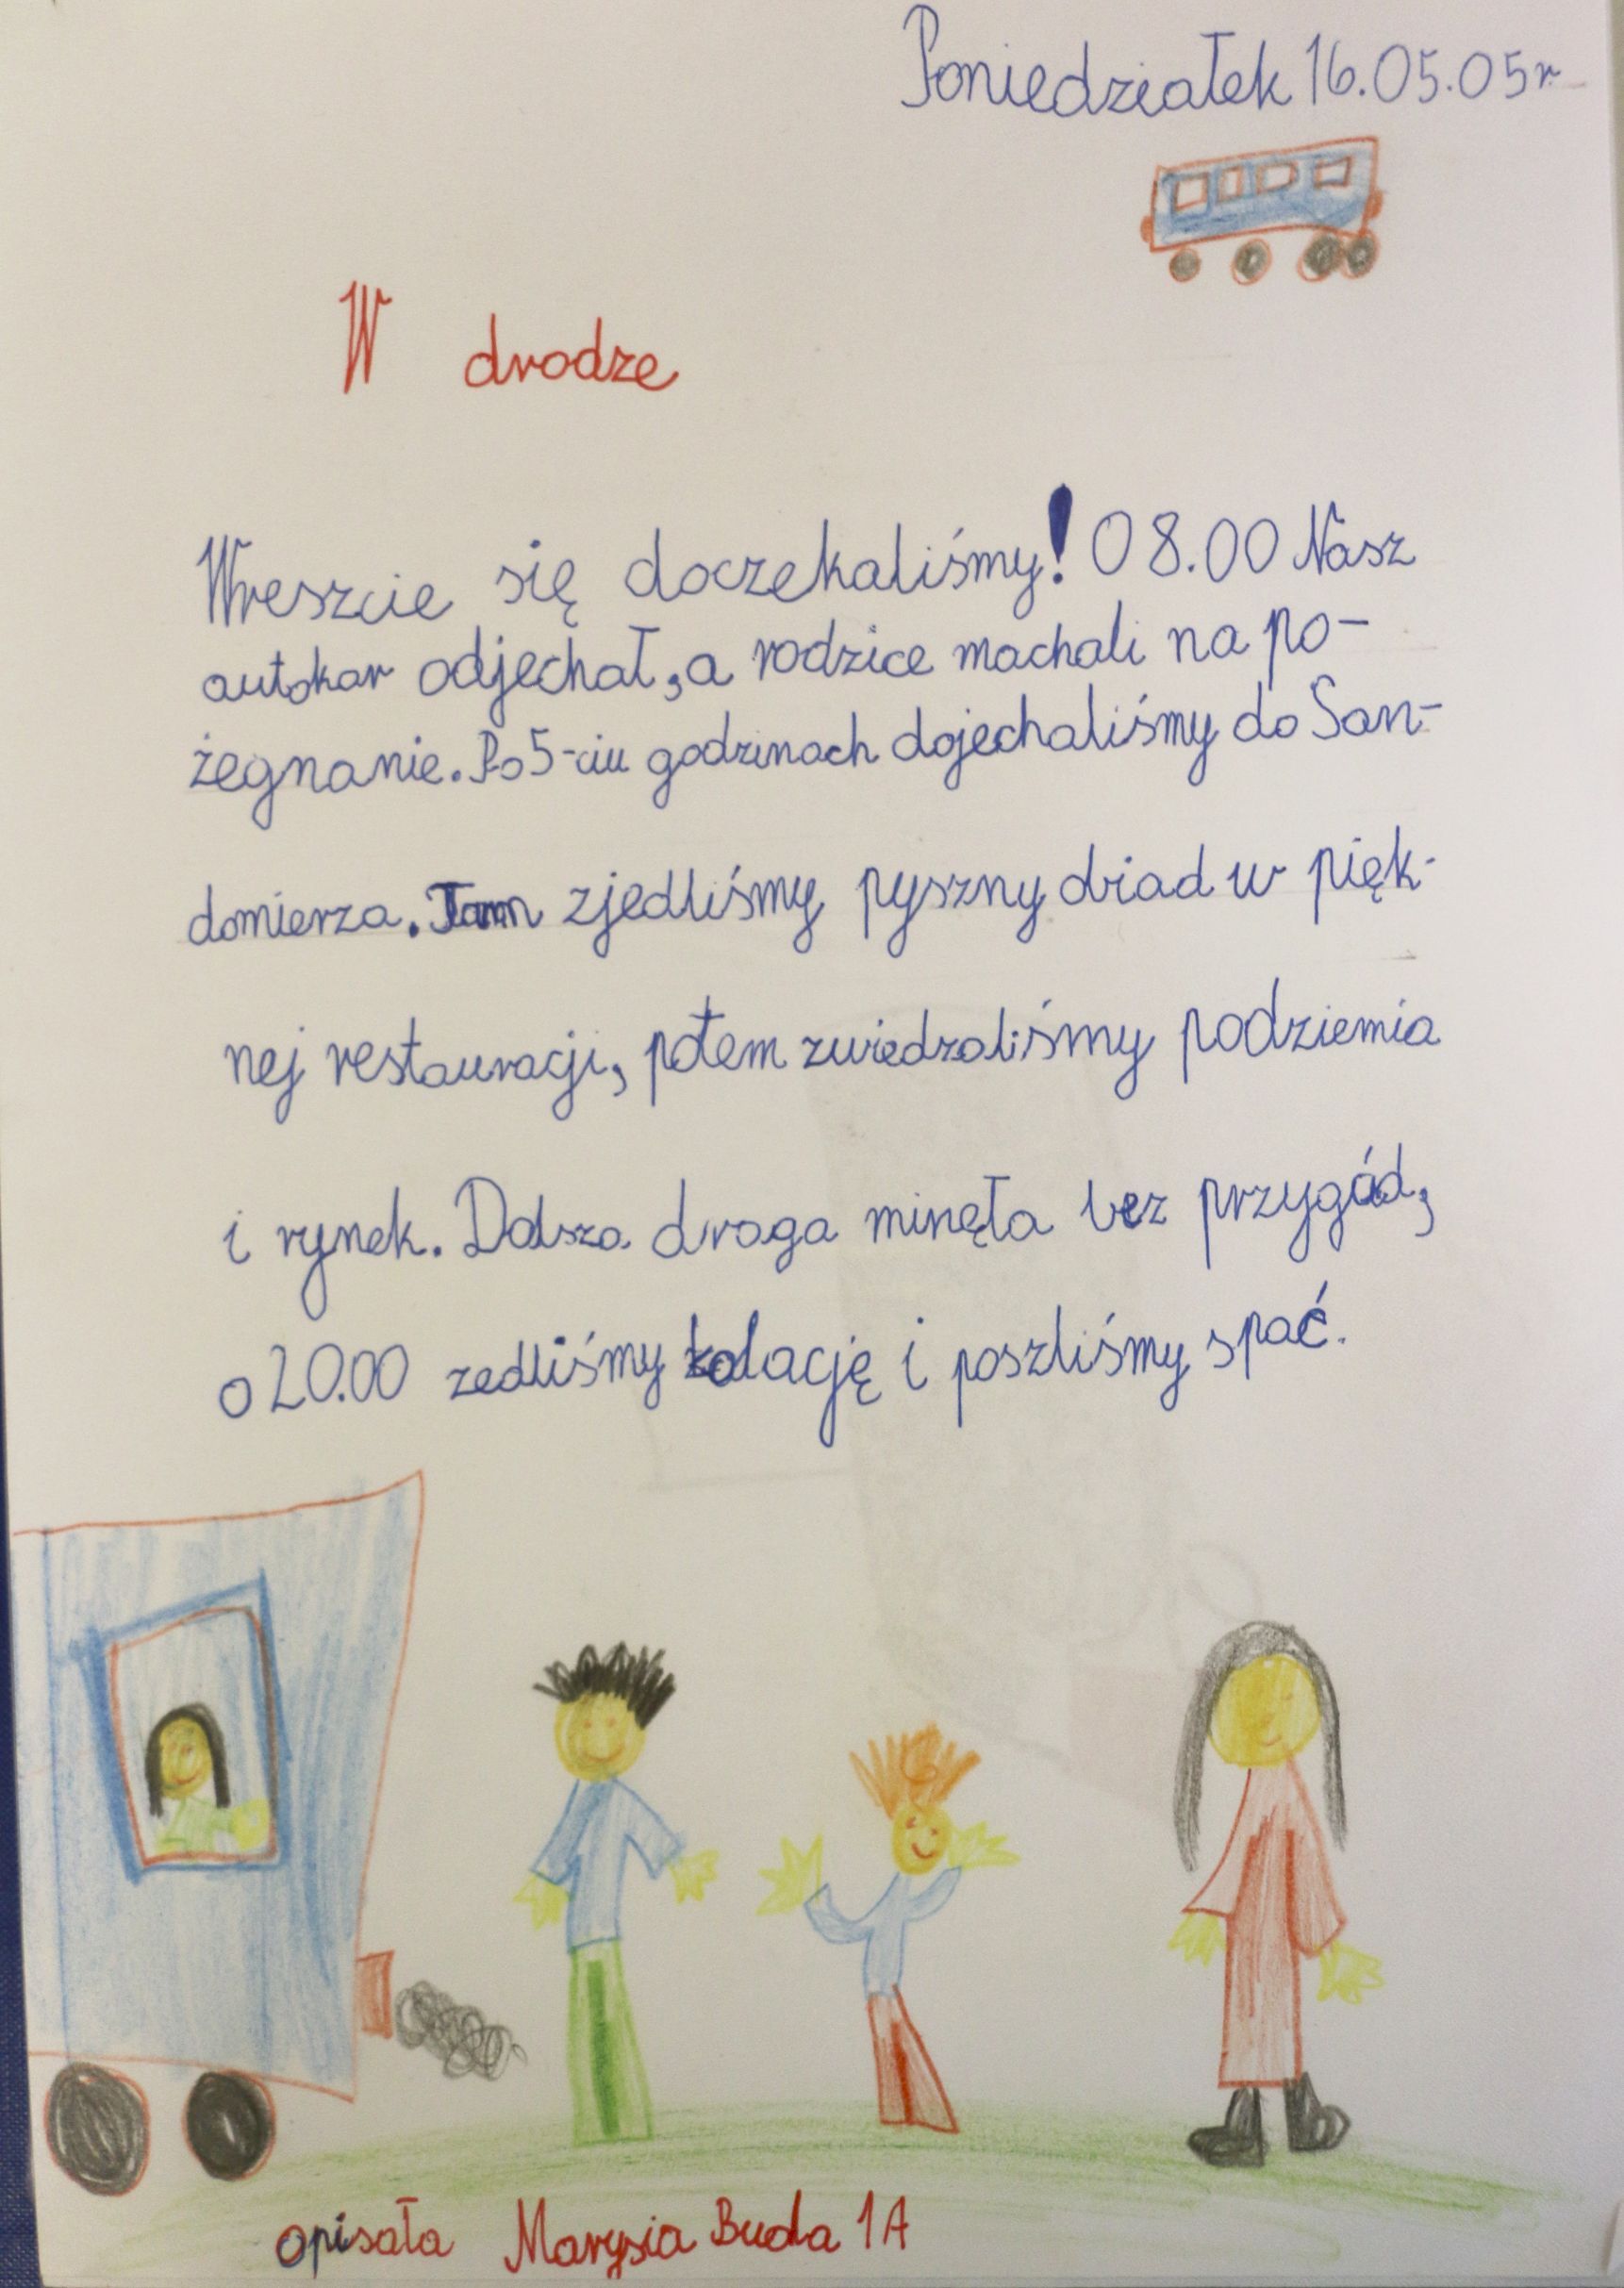 Poniedziałek 16.05.05r
W drodze
Wreszcie się doczekaliśmy! 08.00 Nasz
autokar odjechał, a rodzice machali na po-
żegnanie. Po 5-ciu godzinach dojechaliśmy do San-
domierza. Tam zjedliśmy pyszny obiad w pięk-
nej restauracji, potem zwiedzaliśmy podziemia
i rynek. Dalsza droga minęła bez przygód,
o 20.00 zedliśmy kolację i poszliśmy spać.
opisała Marysia Buda 1A